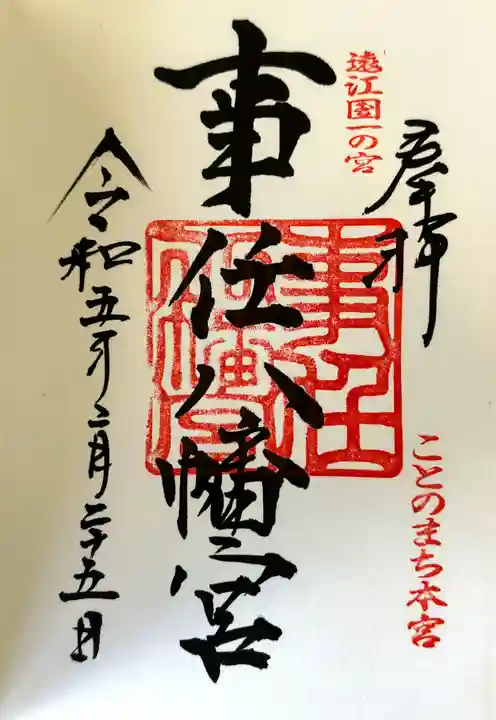 遠江国一の宮
奉拝
ことのまち本宮
事任八幡宮
事任八幡宮
令和五年二月二十五日